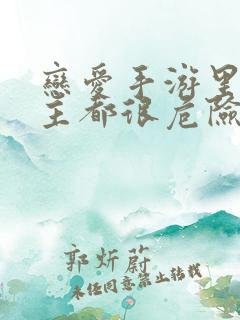 戀愛手游里
主都很危險
郭炘蔚
未经同意禁止转载